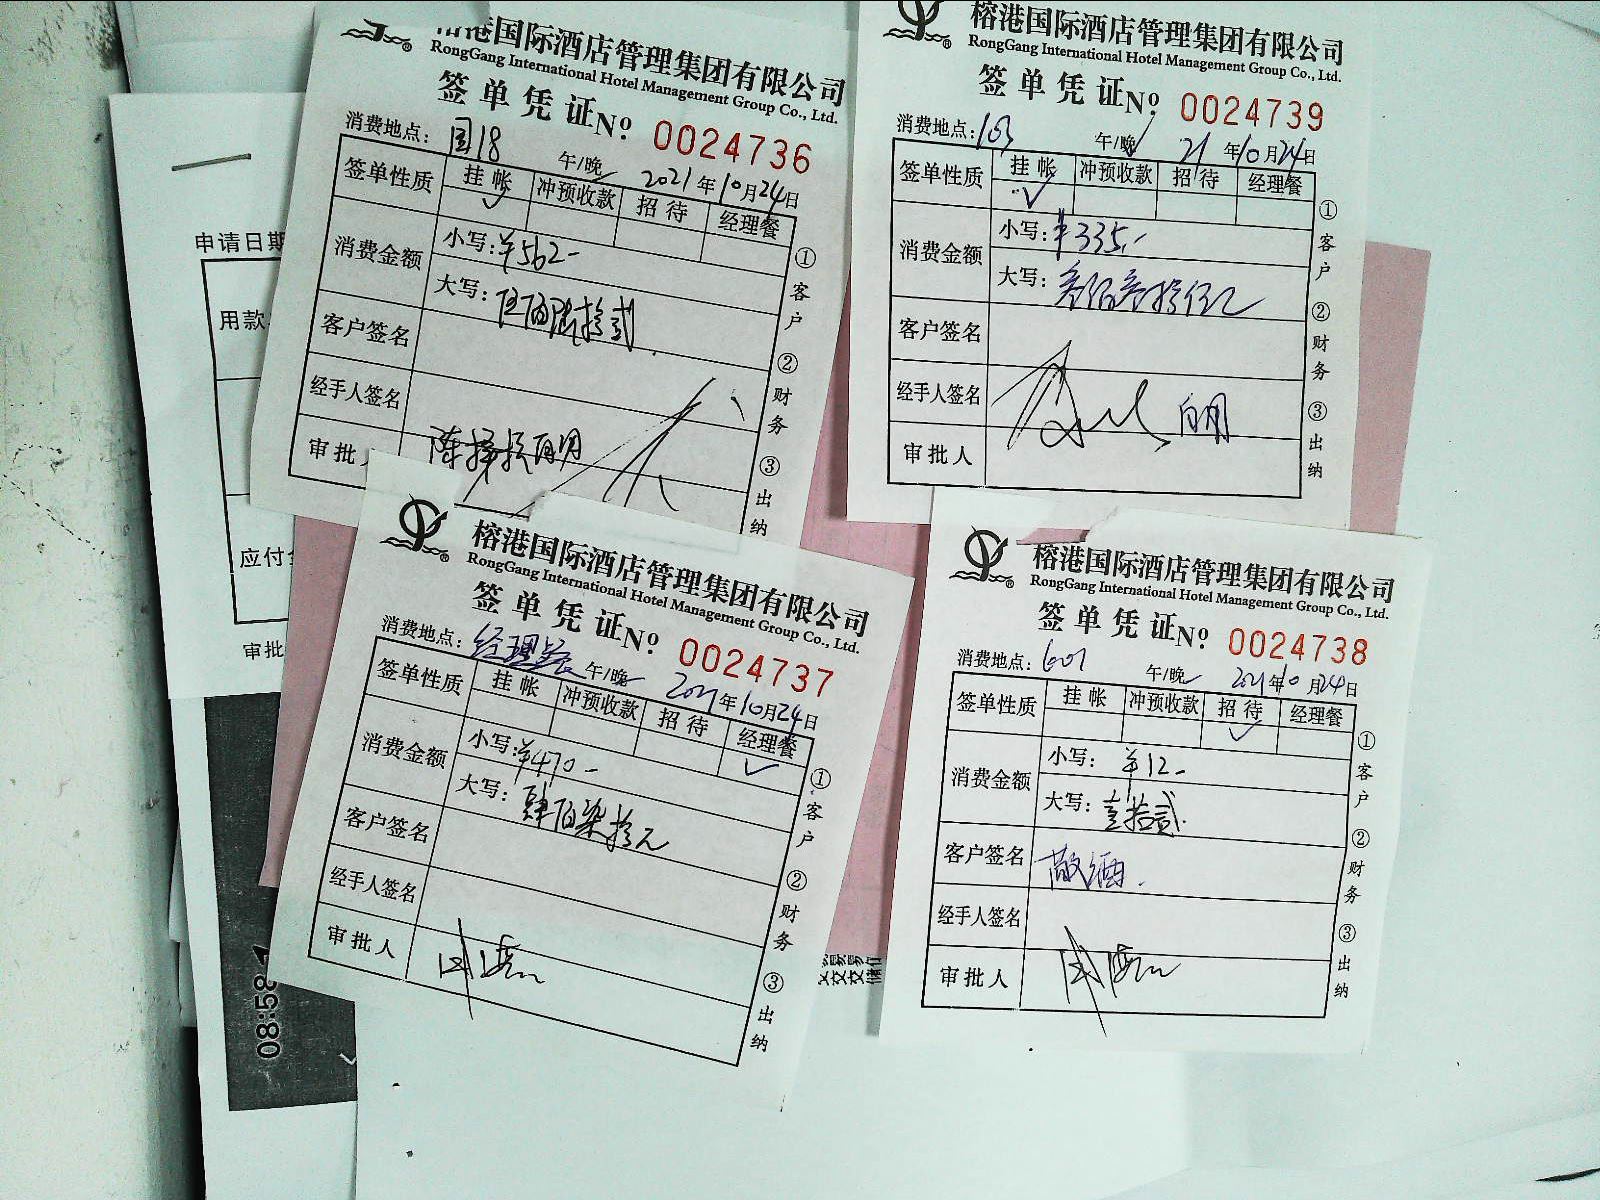 榕港国际酒店管理集团有限公司
RongGang International Hotel Management Group Co., Ltd.
签单凭证 No: 0024736
消费地点: 国18 午/晚 2021年10月24日
签单性质 挂帐 冲预收款 招待 经理餐
消费金额 小写: ¥562-
大写: 伍佰陆拾贰
客户签名
经手人签名
审批人
①客户 ②财务 ③出纳
榕港国际酒店管理集团有限公司
RongGang International Hotel Management Group Co., Ltd.
签单凭证 No: 0024739
消费地点: 163 午/晚 21年10月24日
签单性质 挂帐 冲预收款 招待 经理餐
消费金额 小写: ¥335.-
大写: 叁佰叁拾伍元
客户签名
经手人签名
审批人
①客户 ②财务 ③出纳
榕港国际酒店管理集团有限公司
RongGang International Hotel Management Group Co., Ltd.
签单凭证 No: 0024737
消费地点: 经理 午/晚 2021年10月24日
签单性质 挂帐 冲预收款 招待 经理餐
消费金额 小写: ¥470-
大写: 肆佰柒拾元
客户签名
经手人签名
审批人
①客户 ②财务 ③出纳
榕港国际酒店管理集团有限公司
RongGang International Hotel Management Group Co., Ltd.
签单凭证 No: 0024738
消费地点: 601 午/晚 2021年10月24日
签单性质 挂帐 冲预收款 招待 经理餐
消费金额 小写: ¥12-
大写: 壹拾贰
客户签名 敬酒.
经手人签名
审批人
①客户 ②财务 ③出纳
申请日期
用款
应付
审批
08:58